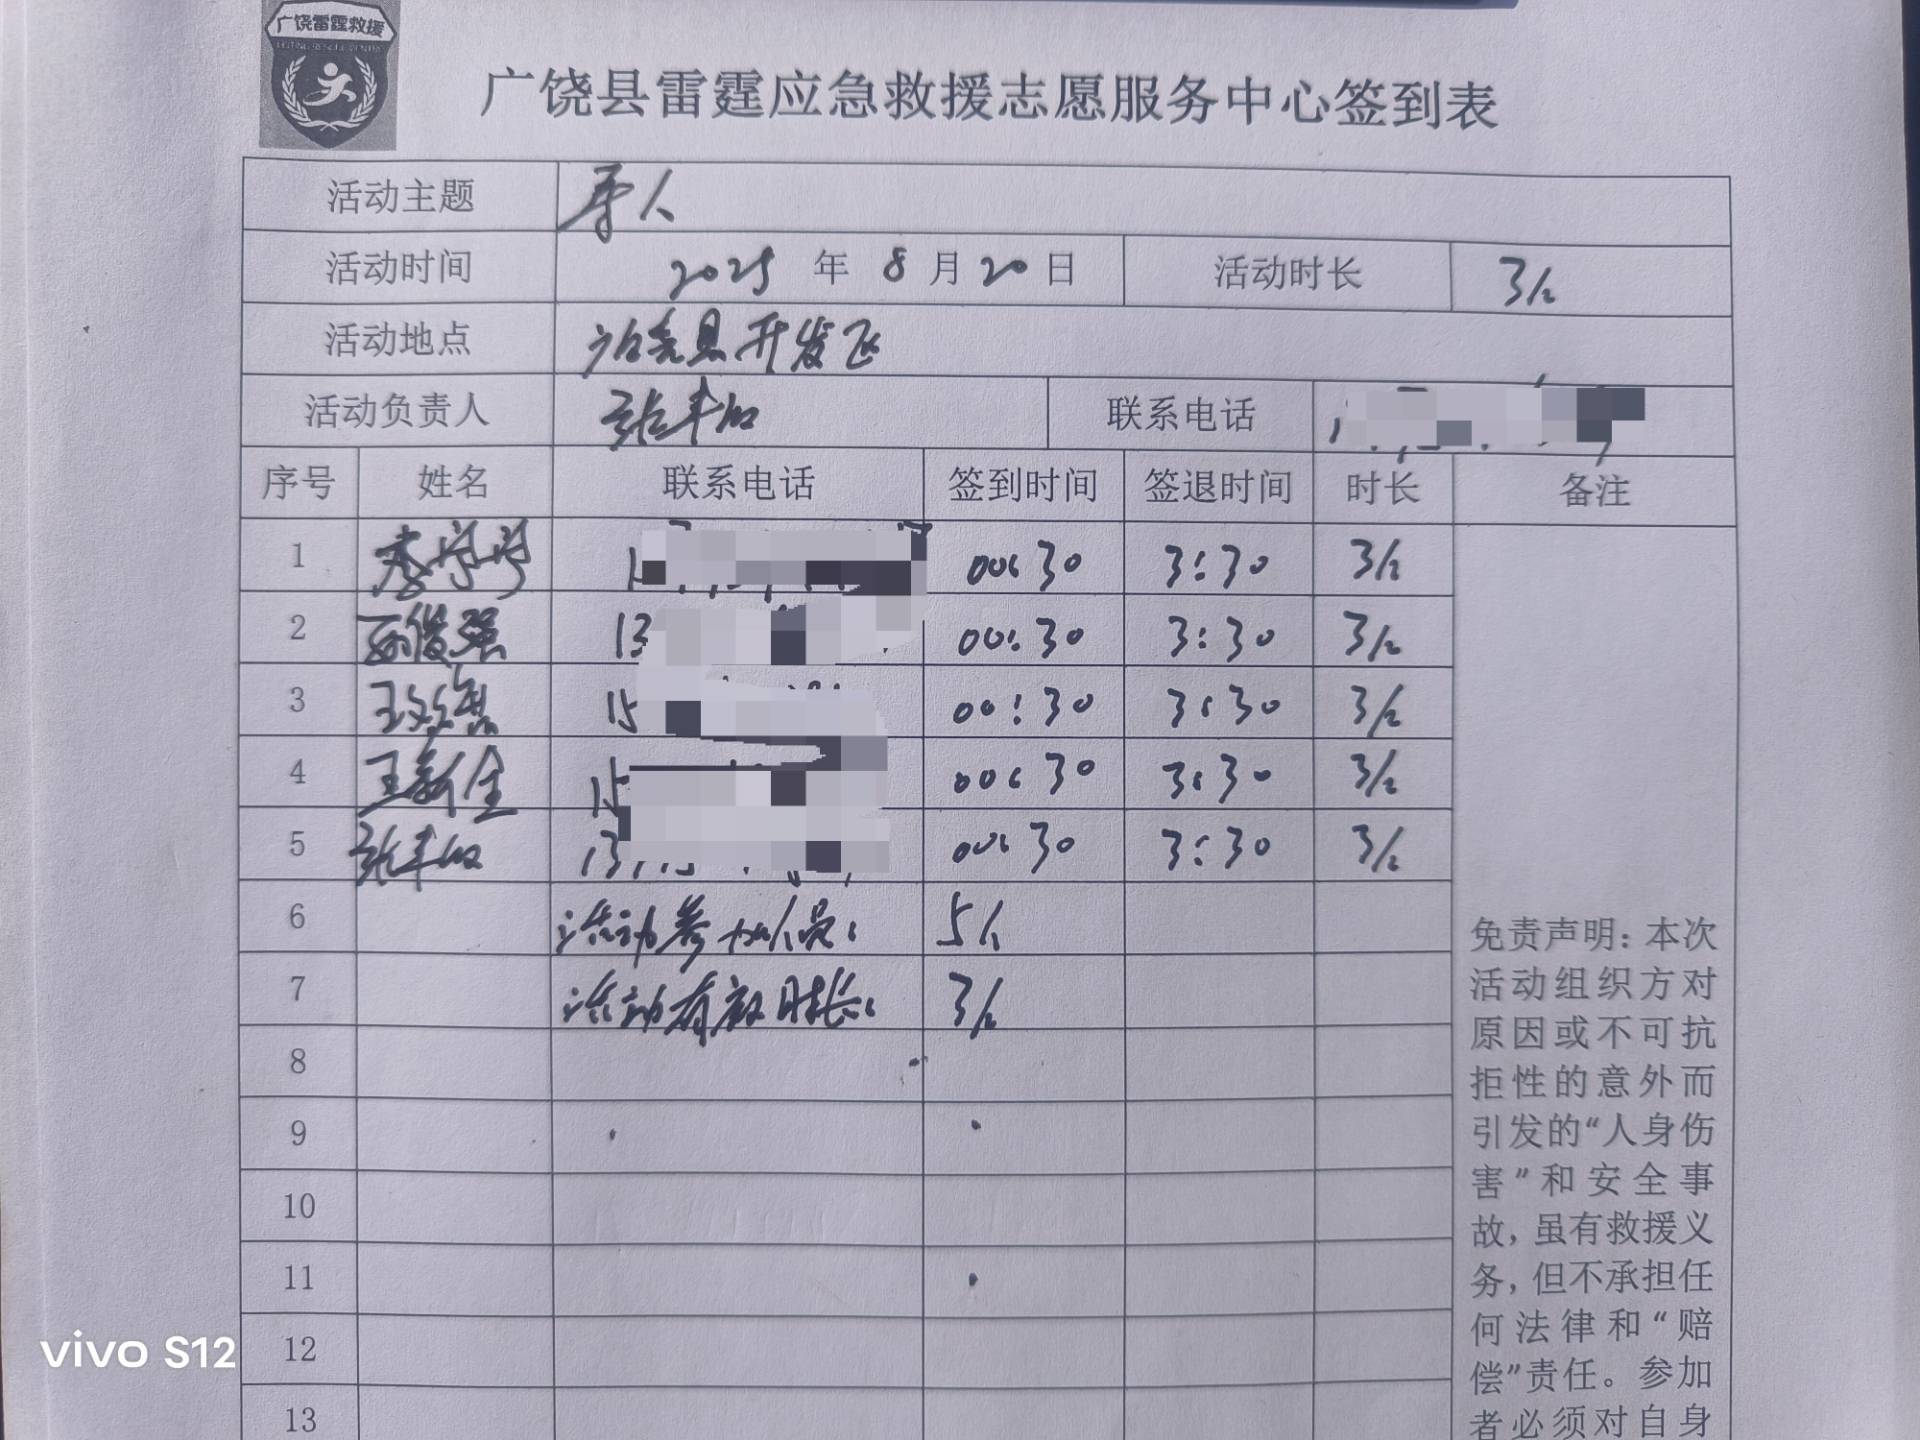 广饶雷霆救援
广饶县雷霆应急救援志愿服务中心签到表
活动主题 寻人
活动时间 2025 年 8 月 20 日 活动时长 3/2
活动地点 广饶县开发区
活动负责人 联系电话
序号 姓名 联系电话 签到时间 签退时间 时长 备注
1 李 00:30 3:30 3/2
2 孙俊强 13 00:30 3:30 3/2
3 王 15 00:30 3:30 3/2
4 王新全 15 00:30 3:30 3/2
5 13 00:30 3:30 3/2
6 活动参加人员: 5人
7 活动有效时长: 3/2
8
9
10
11
12
13
免责声明:本次
活动组织方对
原因或不可抗
拒性的意外而
引发的“人身伤
害”和安全事
故,虽有救援义
务,但不承担任
何法律和“赔
偿”责任。参加
者必须对自身
vivo S12